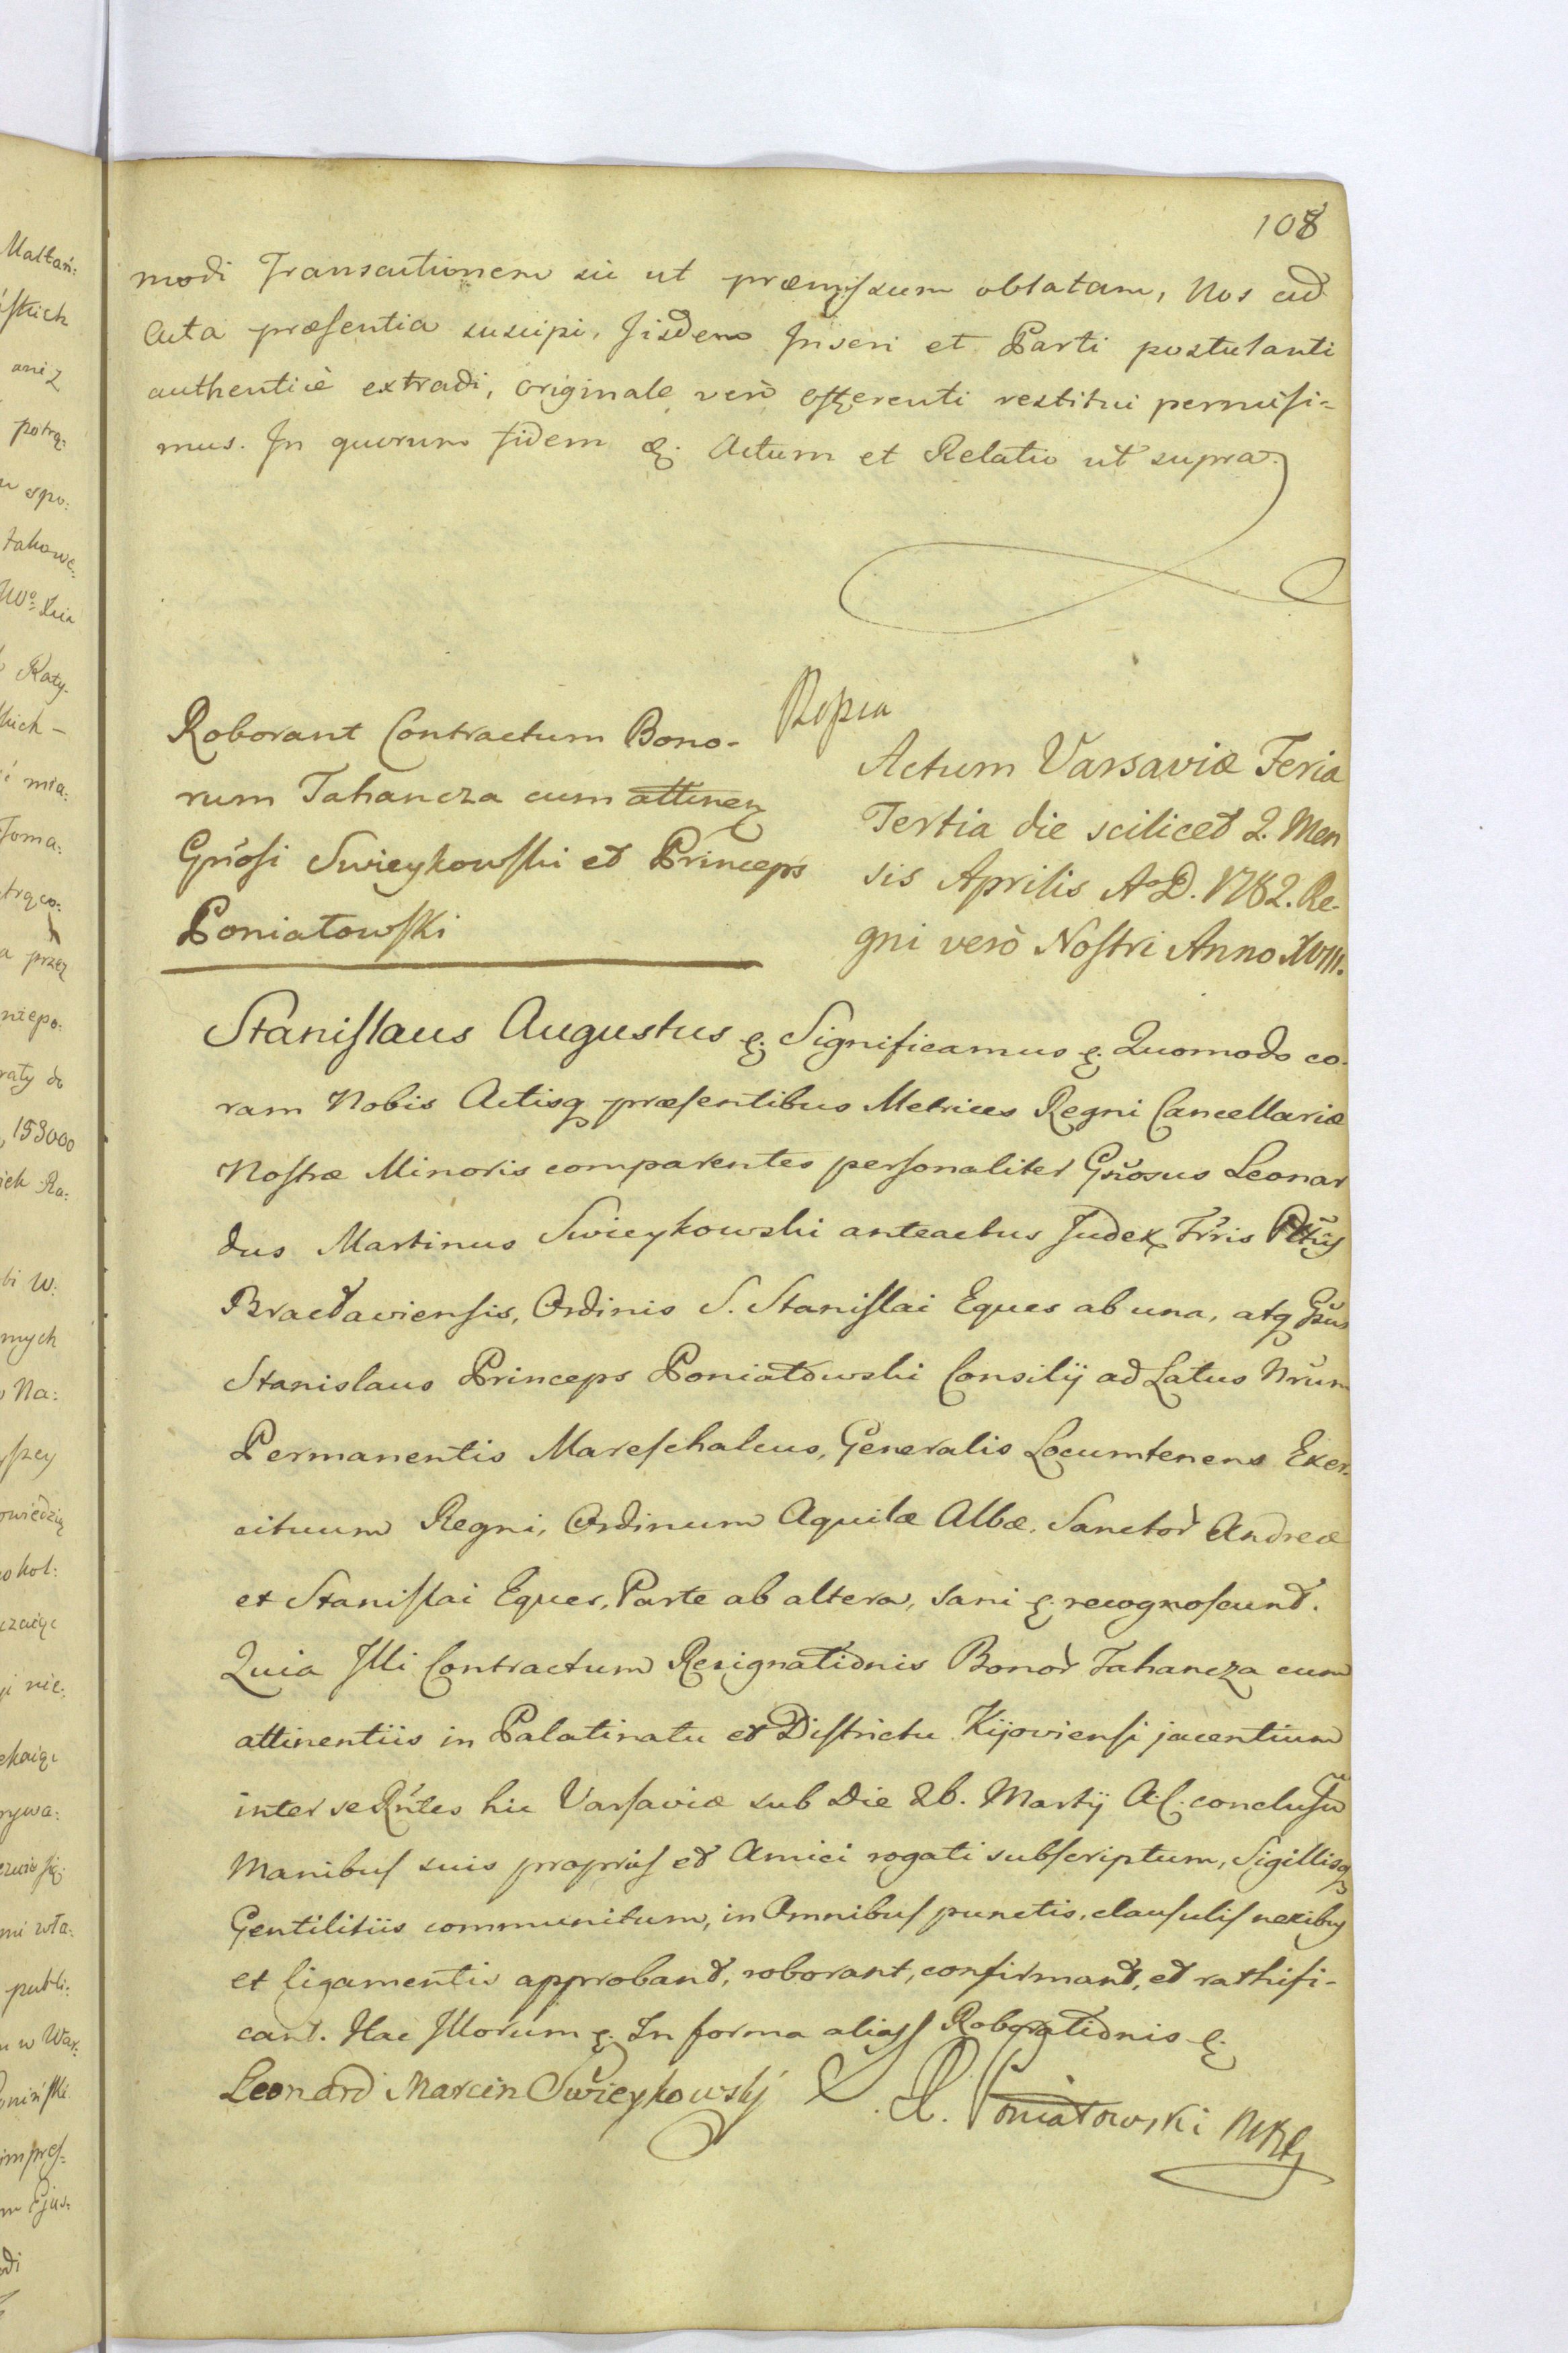 108
modi Transactionem sic ut præmissum oblatam, Nos ad
Acta præsentia suscipi, Iisdem Inseri et Parti postulanti
authenticè extradi, originale verò offerenti restitui permisi=
mus. In quorum fidem &. Actum et Relatio ut supra.
Kopia
Roborant Contractum Bono-
rum Tahancza cum attinen
Gnosi Swieykowski et Princeps
Poniatowski
Actum Varsaviæ Feria
Tertia die scilicet 2. Men
sis Aprilis A.D. 1782. Re-
gni verò Nostri Anno XVIII.
Stanislaus Augustus &. Significamus &. Quomodo co-
ram Nobis Actisq præsentibus Metrices Regni Cancellariæ
Nostræ Minoris comparentes personaliter Gnosus Leonar
dus Martinus Swieykowski anteactus Judex Trris Pttûs
Bracłaviensis, Ordinis S. Stanislai Eques ab una, atq Gsus
Stanislaus Princeps Poniatowski Consilij ad Latus Nrum
Permanentis Mareschalcus, Generalis Locumtenens Exer-
cituum Regni, Ordinum Aquilæ Albæ, Sanctor Andreæ
et Stanislai Eques, Parte ab altera, sani &. recognoscunt.
Quia Illi Contractum Resignationis Bonor Tahancza cum
attinentiis in Palatinatu et Districtu Kijoviensi jacentium
inter se Rntes hic Varsaviæ sub Die 26. Martij A.C. conclusũ
Manibus suis proprijs et Amici rogati subscriptum, Sigillisq
Gentilitiis communitum, in Omnibus punctis, clausulis nexibus
et ligamentis approbant, roborant, confirmant, et rathifi-
cant. Hac Illorum &. In forma aliass Roborationis &.
Leonard Marcin Swieykowskj
S. X. Poniatowski